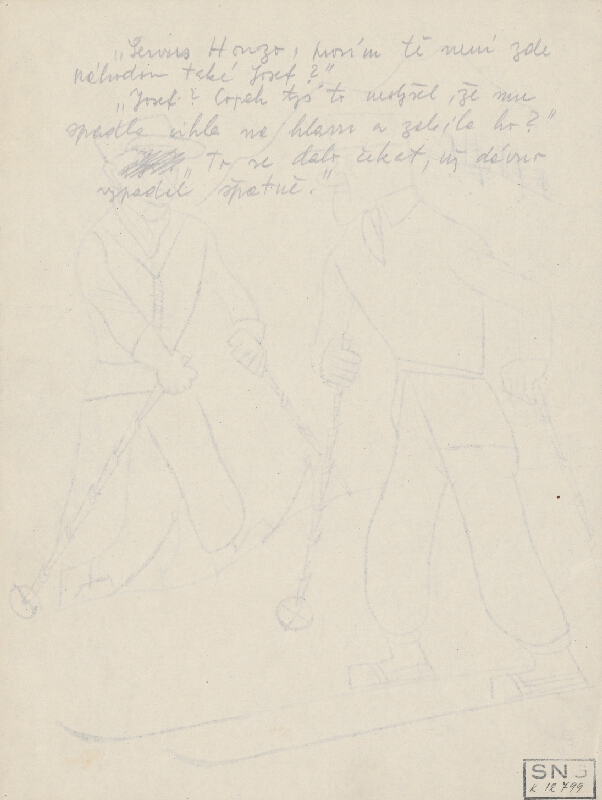 „Servus Honzo, prosím tě není zde
náhodou také Josef?"
„Josef? Copak tys to neslyšel, že mu
spadla cihla na hlavu a zabila ho?"
„To se dalo čekat, už dávno
vypadal špatně."
SNG
K 12799